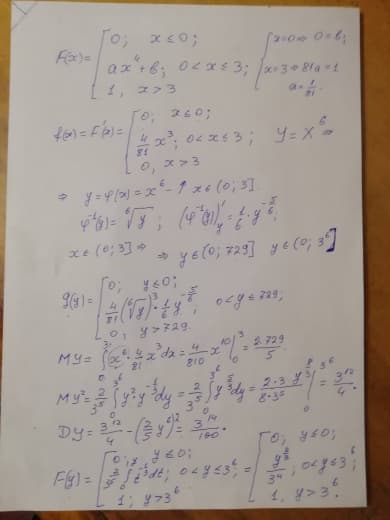 F(x) = [ 0; x ≤ 0; ax⁴ + в; 0 < x ≤ 3; 1, x > 3 [ x=0 ⇒ 0=в; x=3 ⇒ 81a=1 a = 1/81.
f(x) = F'(x) = [ 0; x ≤ 0; 4/81 x³; 0 < x ≤ 3; 0, x > 3 Y = X⁶ ⇒
⇒ y = φ(x) = x⁶ – ↑ x ∈ (0; 3]
φ⁻¹(y) = ⁶√y ; (φ⁻¹(y))'y = 1/6 · y^(-5/6);
x ∈ (0; 3] ⇒ ⇒ y ∈ (0; 729] y ∈ (0; 3⁶]
g(y) = [ 0; y ≤ 0; 4/81 (⁶√y)³ · 1/6 y^(-5/6); 0 < y ≤ 729; 0, y > 729.
MY = ∫₀³ x⁶ · 4/81 x³ dx = 4/810 x¹⁰ |₀³ = 2·729/5.
MY² = 2/3⁵ ∫₀^(3⁶) y² y^(-1/3) dy = 2/3⁵ ∫₀^(3⁶) y^(5/3) dy = 2·3/8·3⁵ y^(8/3) |₀^(3⁶) = 3¹²/4.
DY = 3¹²/4 – (2/5 ·)² = 3¹⁴/100.
F(y) = [ 0; y ≤ 0; 2/3⁵ ∫₀^y t^(-1/3) dt; 0 < y ≤ 3⁶; 1; y > 3⁶ = [ 0, y ≤ 0; /3⁴; 0 < y ≤ 3⁶; 1, y > 3⁶.